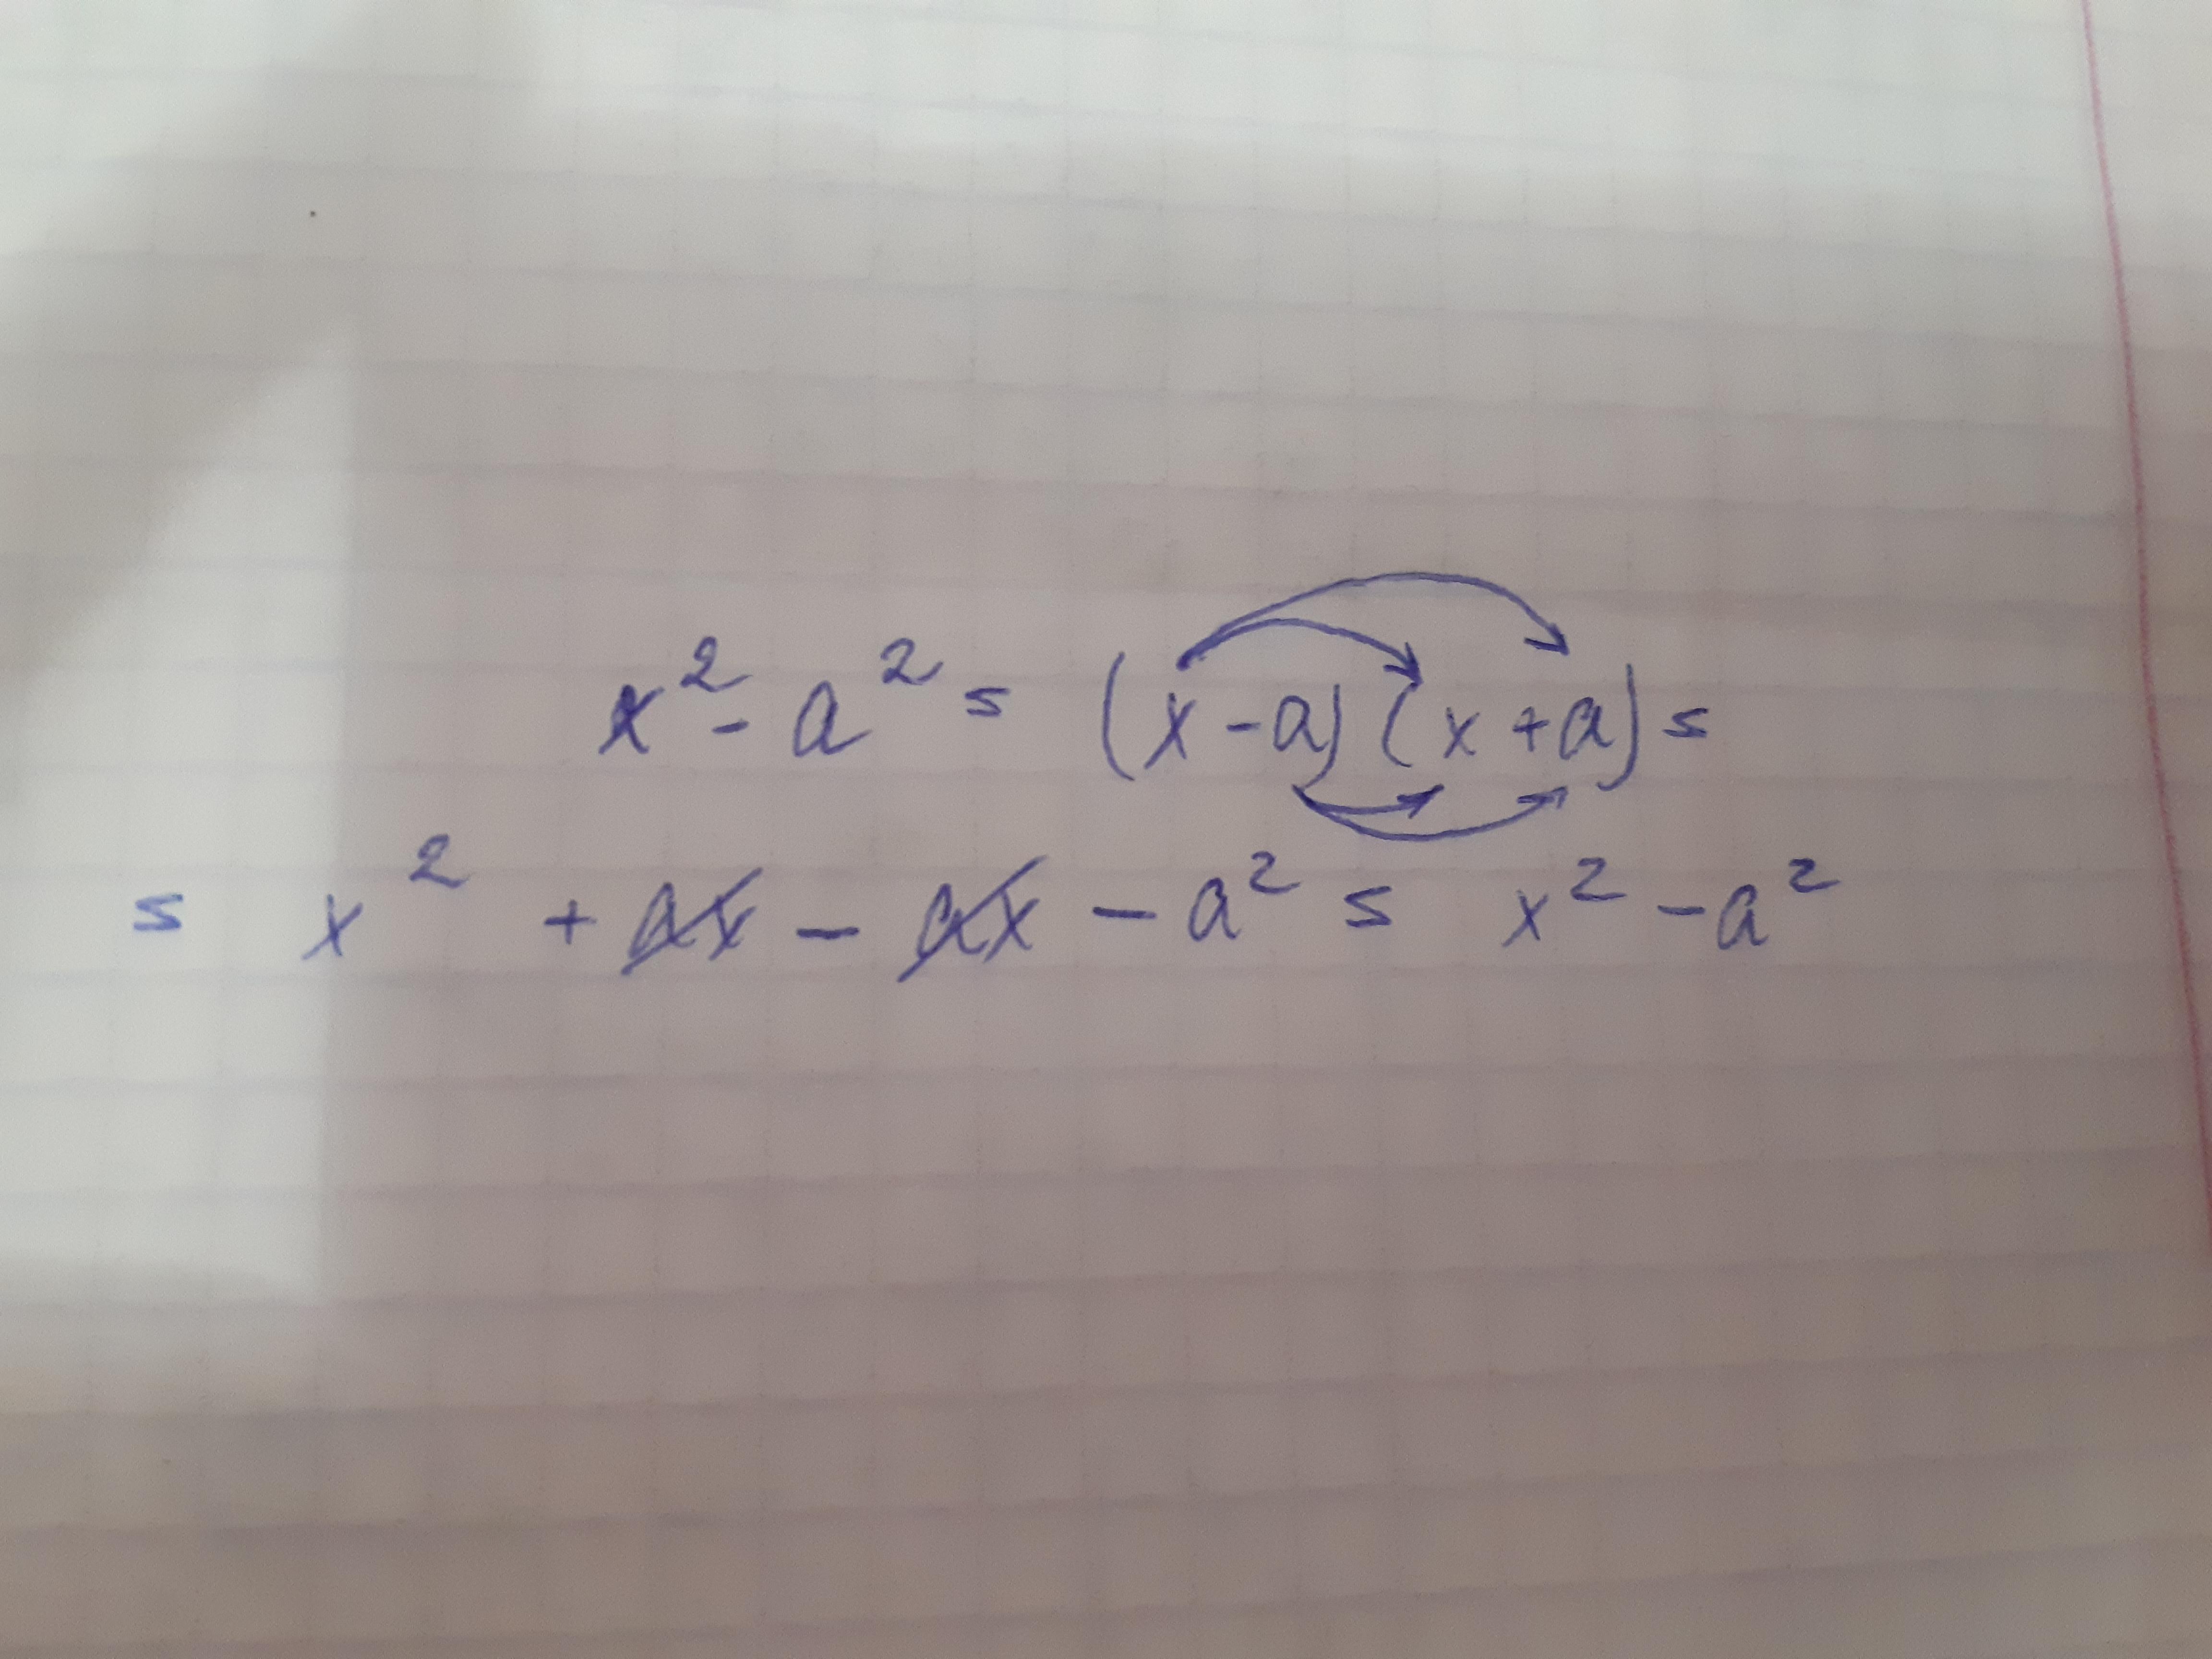 x² - a² = (x - a)(x + a) =
= x² + ax - ax - a² = x² - a²